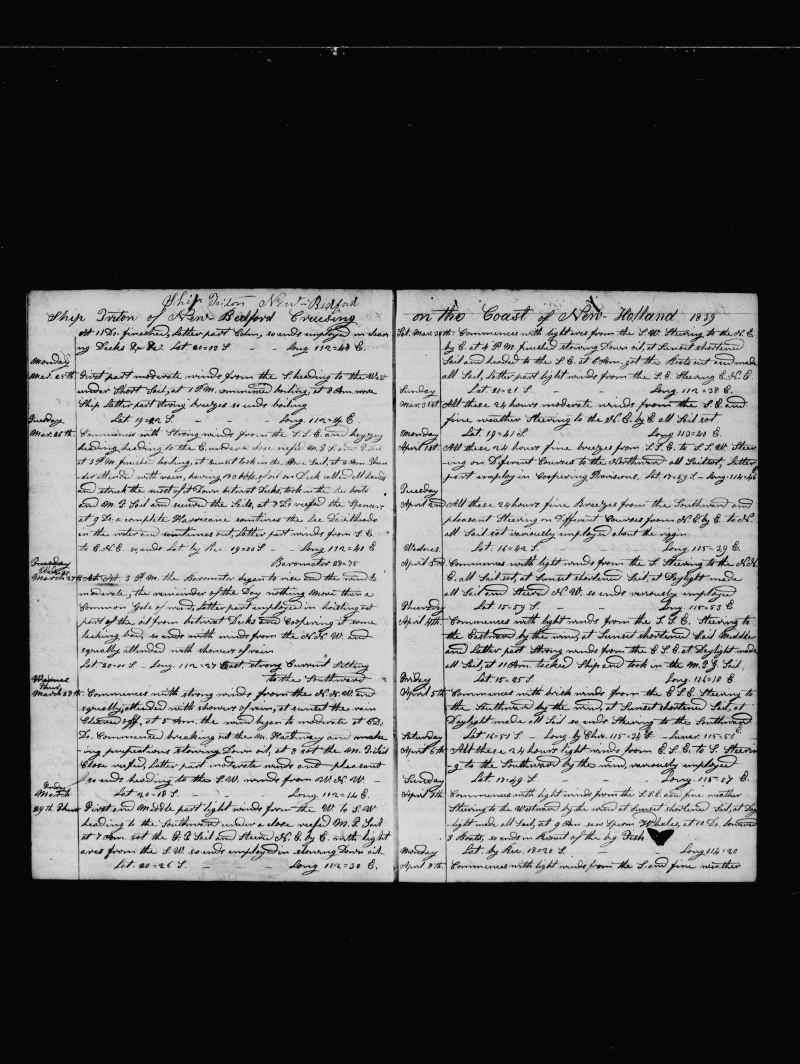 Ship Triton New-Bedford
Ship Triton of New Bedford Cruising
At 11 Do. finished, latter part Calm, so ends employed in clear
ng Decks &c &c. Lat 20=02 S. - - Long 112=43 E.
Monday
Mar. 25th First part moderate winds from the S. heading to the Wes
under Short Sail, at 1 P.M. commenced boiling, at 3 Am. wore
Ship latter part strong breezes so ends boiling
Tuesday Lat 19=22 S. - - - Long 112=14 E.
Mar. 26th Commences with Strong winds from the S.S.E. and
heading heading to the E. under a close reefed M.T.S. and
at 3 P.M. finished boiling, at sunset took in the Fore Sail, at 3 Am.
attended with rain, having oil on Deck called all hands
and struck the most of it Down betwixt Decks, took in the lee boats
and M.T. Sail and secured the Sails, at 7 Do. reefed the Spencer
at 9 Do. a complete Hurricane continues the lee Davitheads
in the water and continues out, latter part winds from S.E.
to E.N.E. so ends Lat by Rec. 19=00 S - Long 112=40 E
Barometer 28=75
March 27th 3 P.M. the Barometer began to rise and the wind to
moderate, the remainder of the Day nothing more than a
Common Gale of wind, latter part employed in hoisting out
part of the oil from betwixt Decks and Coopering it some
leaking bad, so ends with winds from the N.N.W. and
squally attended with showers of rain
Lat 20=01 S - Long. 112=27 East, strong Current Setting
to the Southward
March 28th Commences with strong winds from the N.N.W. and
squally, attended with showers of rain, at sunset the rain
Cleared off, at 5 Am. the wind began to moderate at 6 Do.
Do. Commenced breaking out the M. Hatchway and make
-ing preparations stowing Down oil, at 8 set the M.T. Sail
Close reefed, latter part moderate winds and pleasant
so ends heading to the S.W. winds from W.N.W -
March Lat 20=18 S. - - - Long 112=14 E.
29th First and Middle part light winds from the W. to S.W
heading to the Southward under a close reefed M.T. Sail
at 7 Am. set the F.T. Sail and Steerd N.E. by E. with light
ares from the S.W. so ends employed in stowing Down oil
Lat. 20=26 S. - - Long 112=30 E.
on the Coast of New-Holland 1839
Sat. Mar. 30th: Commences with light ares from the S.W. Steering to the N.E.
by E. at 4 P.M. finished stowing Down oil, at Sunset shortened
Sail and headed to the S.E. at 6 Am. got the Boats out and made
all Sail, latter part light winds from the S.E. Steering E.N.E
Sunday Lat. 20=21 S Long. 112=38 E.
Mar. 31st All these 24 hours moderate winds from the S.E. and
fine weather Steering to the N.E. by E. all Sail set
Monday Lat 19=41 S. Long 113=40 E.
April 1st. All these 24 hours fine breezes from S.S.E. to S.S.W. Steer
ing on Different Courses to the Northward all Sail set, latter
part employ in Coopering Provisions, Lat 17=59 S - Long. 114=46
Tuesday
April 2nd All these 24 hours fine Breezes from the Southward and
pleasant Steering on Different Courses from N.E. by E. to N.
all Sail set variously employed about the rigin
Wednes. Lat. 16=42 S. - - Long. 115=29 E.
April 3rd Commences with light winds from the S. Steering to the N.N.
E. all Sail set, at Sunset shortened Sail, at Daylight made
all Sail and Steerd N.E. so ends variously employed
Thursday Lat 15=59 S. - - Long 115=53 E.
April 4th Commences with light winds from the S.S.E. Steering to
the Eastward by the wind, at Sunset shortened Sail Middle
and Latter part Strong winds from the E.S.E. at Daylight made
all Sail, at 11 Am. tacked Ship and took in the M.T.G. Sail.
Friday Lat 15=25 S. Long 116=10 E.
April 5th Commences with brisk winds from the E.S.E. Steering to
the Southward by the wind, at Sunset shortened Sail, at
Daylight made all Sail so ends Steering to the Southward
Saturday Lat 16=51 S. - Long. by Chro. 115=34 E. - Lunar. 115=50 E.
April 6th All these 24 hours light winds from E.S.E. to S. Steerin
g to the Southward by the wind, variously employed
Sunday Lat. 17=49 S. - - Long. 115=07 E.
April 7th. Commences with light winds from the S.S.E. and fine weather
Steering to the Westward by the wind at Sunset shortened Sail, at Day
light made all Sail, at 9 Am. saw Sperm Whales, at 10 Do. lowered
3 Boats, so ends in Pursuit of the big Fish
Monday Lat. by Rec. 18=20 S. - - Long 114=20
April 8th. Commences with light winds from the S. and fine weather